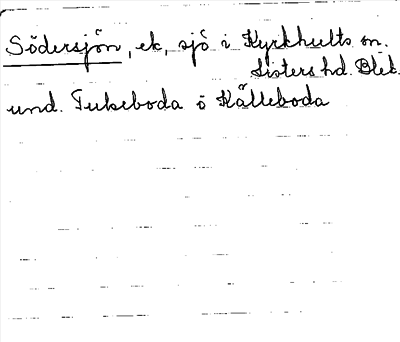 Södersjön, ek, sjö i Kyrkhults sn.
Listers hd. Blek.
und. Tukeboda o Källeboda